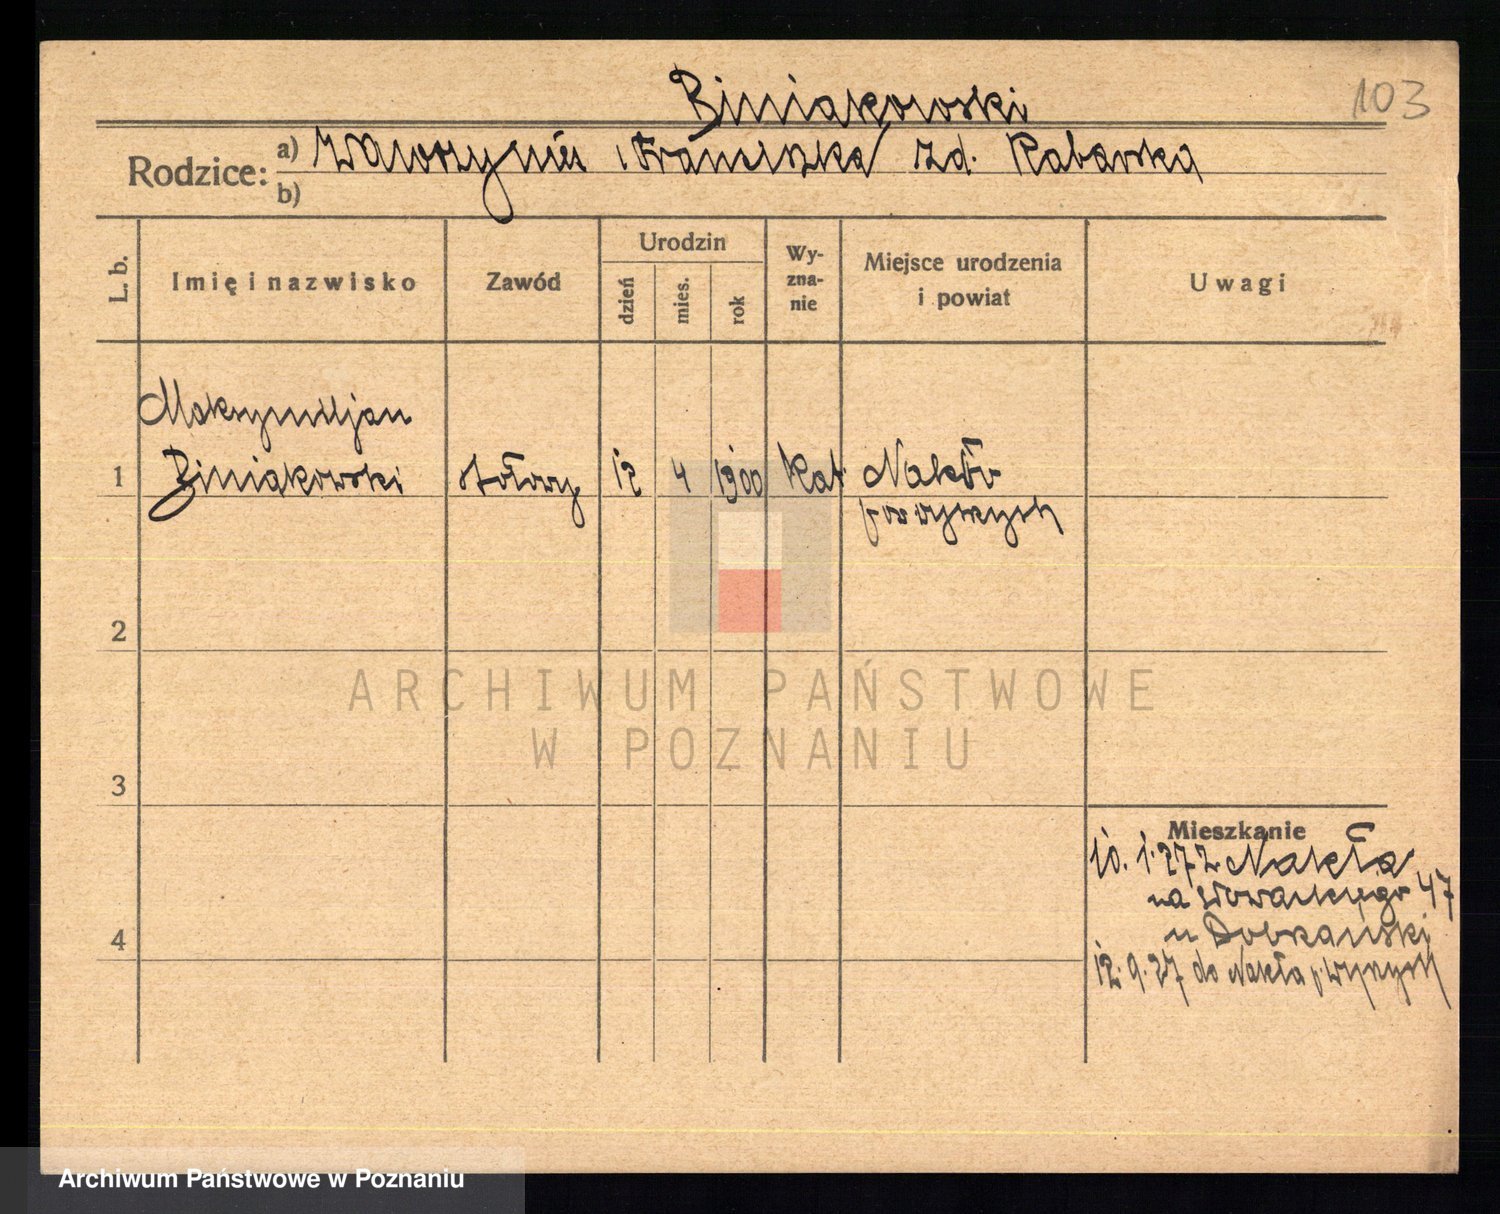 103
Biniakowski
Rodzice: a) Wawrzyniec i Franciszka zd. Rabarska
b)
L. b. Imię i nazwisko Zawód Urodzin dzień mies. rok Wyznanie Miejsce urodzenia i powiat Uwagi
Maksymiljan
1 Biniakowski 12 4 1900 kat. Nakło
wyrzysk
2
3
4
Mieszkanie
10. 1. 27 z Nakła
na Słowackiego 47
u
12. 9. 27 do Nakła p. Wyrzysk
ARCHIWUM PAŃSTWOWE
W POZNANIU
Archiwum Państwowe w Poznaniu